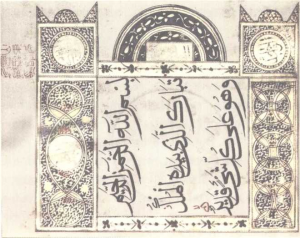 بسم الله الرحمن الرحيم
تبارك الذي بيده الملك
وهو على كل شيء قدير